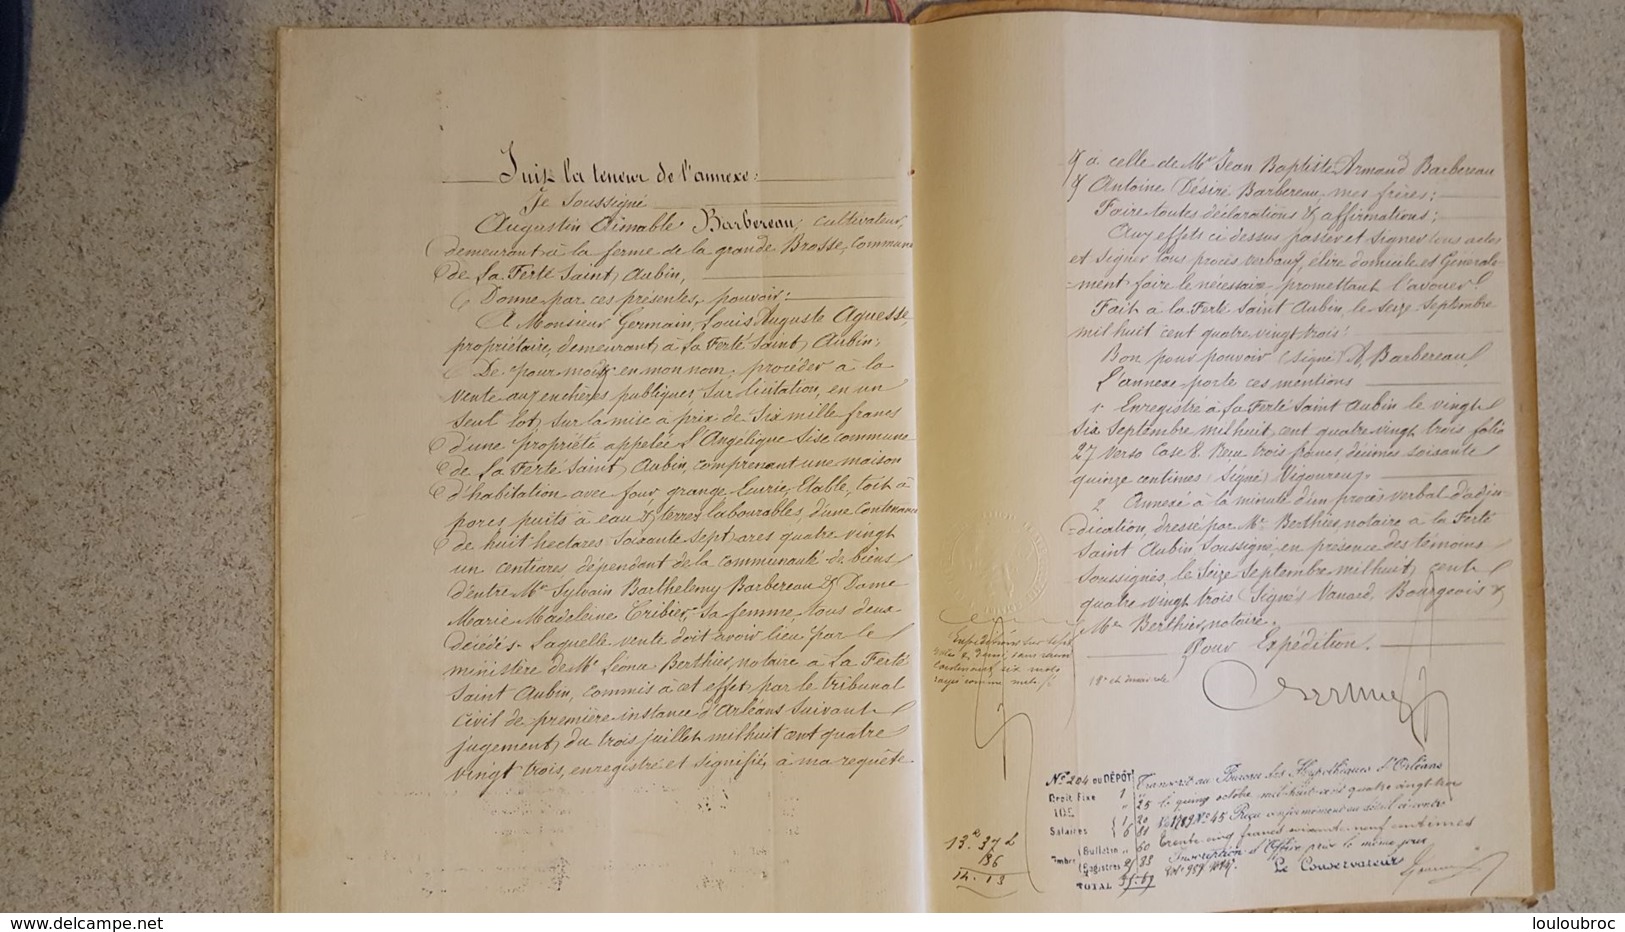 Suit la teneur de l'annexe:
Je soussigné
Augustin Aimable Barbereau, cultivateur,
demeurant à la ferme de la grande Brosse, commune
de La Ferté Saint Aubin,
Donne par ces présentes, pouvoir:
A Monsieur Germain Louis Auguste Aguesse,
propriétaire, demeurant à La Ferté Saint Aubin,
De pour moi & en mon nom, procéder à la
vente aux enchères publiques, sur licitation, en un
seul lot, sur la mise à prix de six mille francs
d'une propriété appelée L'Angélique sise commune
de La Ferté Saint Aubin, comprenant une maison
d'habitation avec four, grange, Ecurie, Etable, toit à
porcs, puits à eau & terres labourables, d'une contenance
de huit hectares soixante sept ares quatre vingt
un centiares dépendant de la communauté de biens
d'entre Mr Sylvain Barthelemy Barbereau & Dame
Marie Madeleine Tribier, sa femme, tous deux
décédés. Laquelle vente doit avoir lieu par le
ministère de Me Berthies, notaire à La Ferté
Saint Aubin, commis à cet effet, par le tribunal
civil de première instance d'Orléans suivant
jugement du trois juillet mil huit cent quatre
vingt trois, enregistré et signifié, à ma requête
& à celle de Mr Jean Baptiste Armand Barbereau
& Antoine Désiré Barbereau, mes frères;
Faire toutes déclarations & affirmations;
Aux effets ci dessus passer et signer tous actes
et signer tous procès verbaux, élire domicile et Générale-
-ment faire le nécessaire, promettant l'avouer.
Fait à la Ferté Saint Aubin, le seize Septembre
mil huit cent quatre vingt trois.
Bon pour pouvoir (signé) A Barbereau.
L'annexe porte ces mentions
1° Enregistré à La Ferté Saint Aubin le vingt
six Septembre mil huit cent quatre vingt trois folio
27 Verso Case 8. Reçu trois francs, décimes soixante
quinze centimes (signé) Vigoureux.
2° Annexé à la minute d'un procès verbal d'adju-
-dication, dressé par Me Berthies, notaire à la Ferté
Saint Aubin soussigné, en présence des témoins
soussignés, le seize Septembre mil huit cent
quatre vingt trois Signés Vanard, Bourgeois &
Me Berthies, notaire.
Pour Expédition.
Expédition sur
rayés comme nuls
No 204 DU DÉPÔT
Transcrit au Bureau des Hypothèques d'Orléans
Droit Fixe 1 " 25 le quinze octobre mil huit cent quatre vingt trois
Salaires 1 20 Vol 1789 No 45 Reçu
6 trente cinq francs soixante neuf centimes
Bulletin " 60 Inscription d'Office prise le même jour
Timbre Registres
TOTAL 35.69
Le Conservateur
13. 37
14. 13